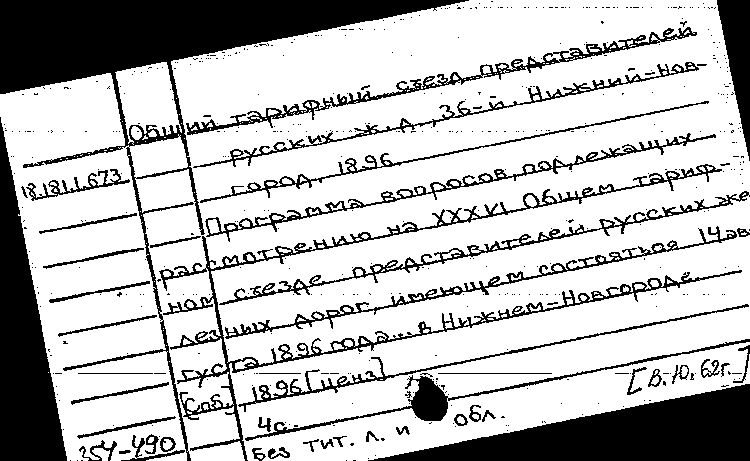 Общий тарифный съезд представителей
русских ж.д., 36-й. Нижний-Нов-
город, 1896.
18.181.1.673
Программа вопросов, подлежащих
рассмотрению на XXXVI Общем тариф-
ном съезде представителей русских же-
лезных дорог, имеющем состояться 14 ав-
густа 1896 года... в Нижнем-Новгороде.
[Спб], 1896 [ценз]
4с. [В.10.62г.]
354-490 Без тит. л. и обл.